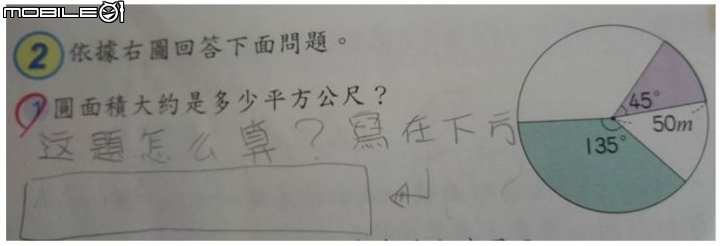 MOBILE01
2 依據右圖回答下面問題。
1 圓面積大約是多少平方公尺？
这題怎么算？寫在下方
45°
50m
135°